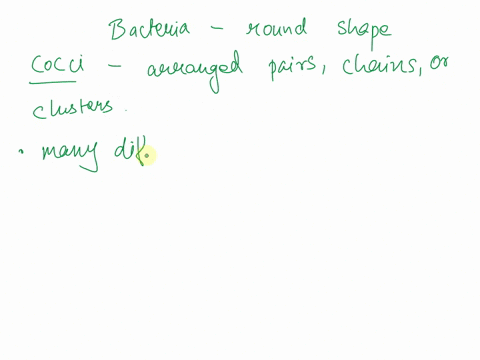 Bacteria - round shape
Cocci - arranged pairs, chains, or
clusters.
• many dif